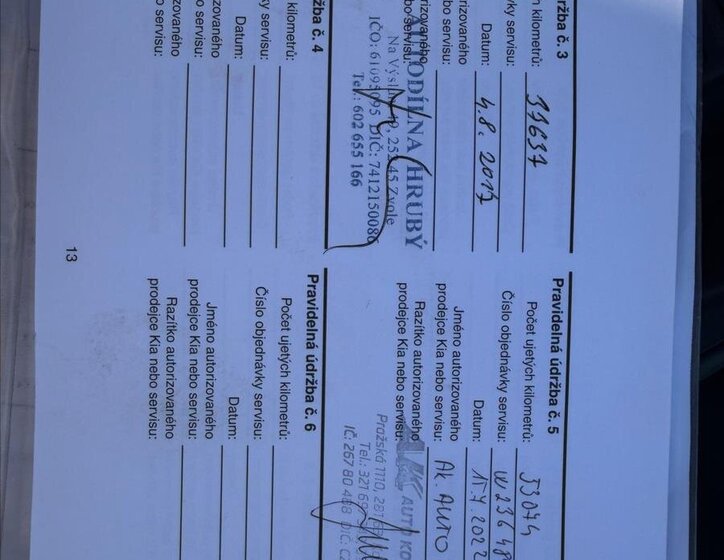 držba č. 3
n kilometrů: 37637
ky servisu:
Datum: 4.8. 2017
rizovaného
bo servisu:
rizovaného
bo servisu:
AUTODÍLNA HRUBÝ
Na Výsluní
Zvole
Tel.: 602 655 166
Pravidelná údržba č. 5
Počet ujetých kilometrů: 53074
Číslo objednávky servisu:
Datum:
Jméno autorizovaného
prodejce Kia nebo servisu: AK. AUTO
Razítko autorizovaného
prodejce Kia nebo servisu:
AUTO KO
Pražská 1110, 281
Tel.: 321 69
IČ: 267 80 498 DIČ: C
držba č. 4
kilometrů:
ky servisu:
Datum:
zovaného
o servisu:
zovaného
o servisu:
Pravidelná údržba č. 6
Počet ujetých kilometrů:
Číslo objednávky servisu:
Datum:
Jméno autorizovaného
prodejce Kia nebo servisu:
Razítko autorizovaného
prodejce Kia nebo servisu:
13